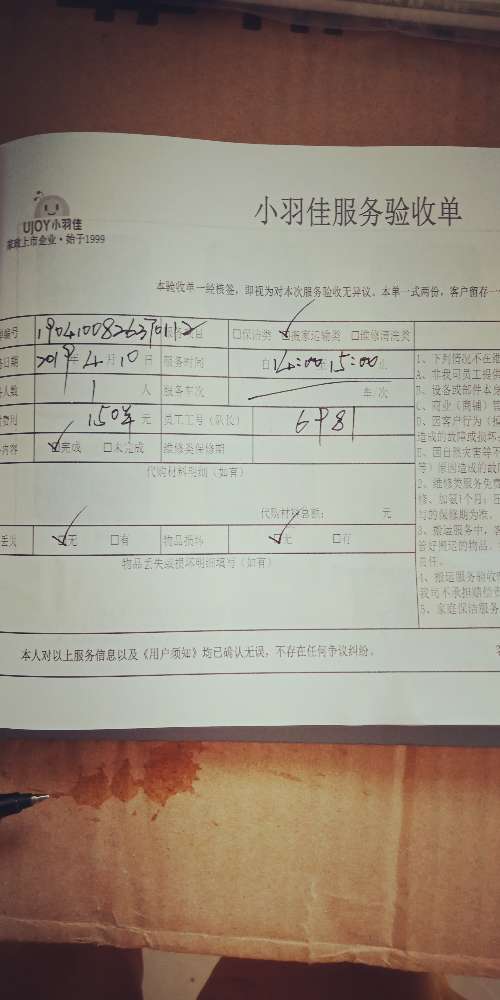 UJOY小羽佳
家政上市企业·始于1999
小羽佳服务验收单
本验收单一经核签，即视为对本次服务验收无异议。本单一式两份，客户留存一
编号 19041008263701 服务项目 □保洁类 ☑搬家运输类 □维修清洗类
日期 2019年4月10日 服务时间 自14:00 15:00止
人数 1 人 服务车次 车/次
费用 150 元 员工工号（队长）
内容 ☑完成 □未完成 维修类保修期
代购材料明细（如有）
代购材料总额： 元
丢失 ☑无 □有 物品损坏 ☑无 □有
物品丢失或损坏明细填写（如有）
1、下列情况不在维
A、非我司员工提供
B、设备或部件本身
C、商业（商铺）管
D、因客户行为
造成的故障或损坏
E、因自然灾害等不
等）原因造成的故
2、维修类服务免费
修、加氨1个月
的保修期为准。
3、搬运服务中，客
管好搬运的物品。
责任。
4、搬运服务验收
我司不承担赔偿责
5、家庭保洁服务
本人对以上服务信息以及《用户须知》均已确认无误，不存在任何争议纠纷。